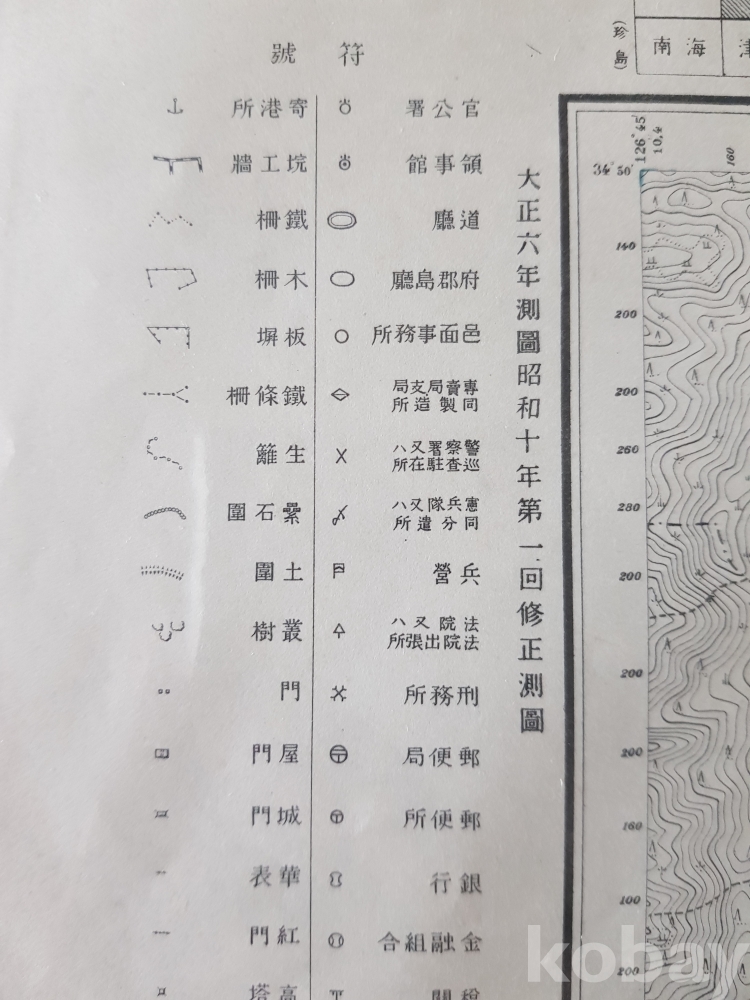 (珍島)
海南
津
34°50′
126°45′
10,4
160
140
200
200
260
280
200
200
200
160
100
200
大正六年測圖昭和十年第一回修正測圖
符號
官公署
領事館
道廳
府郡島廳
邑面事務所
專賣局支局
同製造所
警察署又ハ
巡査駐在所
憲兵隊又ハ
同分遣所
兵營
法院又ハ
法院出張所
刑務所
郵便局
郵便所
銀行
金融組合
稅關
寄港所
垸工牆
鐵柵
木柵
板塀
鐵條柵
生籬
纍石圍
土圍
叢樹
門
屋門
城門
華表
紅門
高塔
kobay